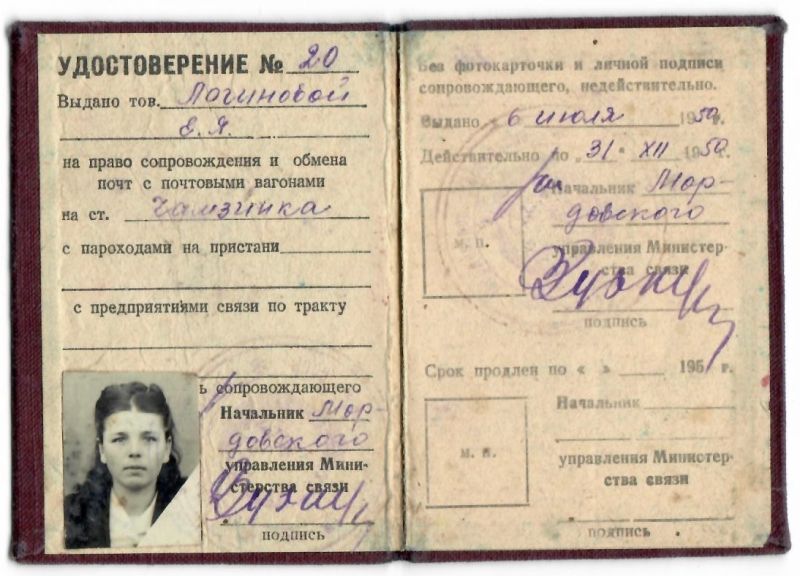 УДОСТОВЕРЕНИЕ № 20
Выдано тов. Логиновой
Е.Я.
на право сопровождения и обмена
почт с почтовыми вагонами
на ст. Чамзинка
с пароходами на пристани
с предприятиями связи по тракту
ь сопровождающего
Начальник Мор-
довского
управления Мини-
стерства связи
подпись
Без фотокарточки и личной подписи
сопровождающего, недействительно.
Выдано 6 июля 1950 г.
Действительно по „31" XII 1950 г.
Начальник Мор-
довского
М. П.
управления Министер-
ства связи
подпись
Срок продлен по « » 195 г.
Начальник
М. П.
управления Министер-
ства связи
подпись